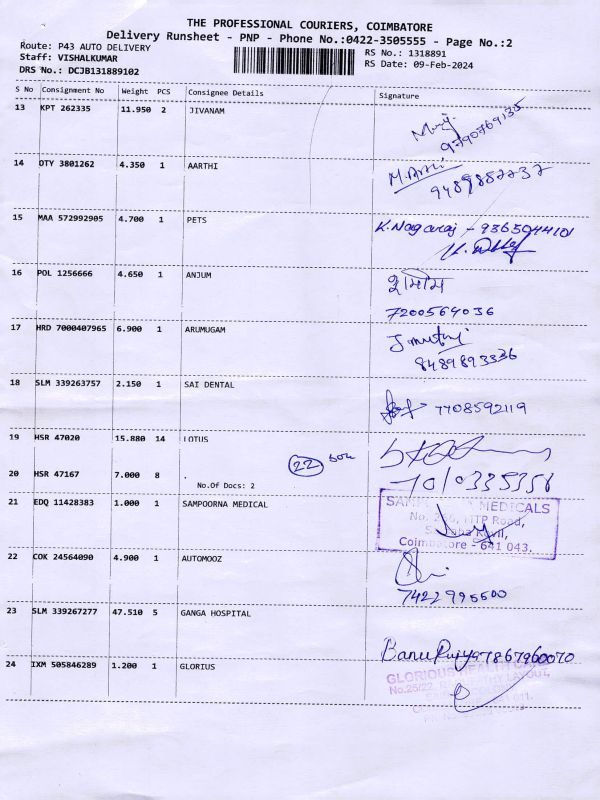 THE PROFESSIONAL COURIERS, COIMBATORE
Delivery Runsheet - PNP - Phone No.:0422-3505555 - Page No.:2
Route: P43 AUTO DELIVERY
RS No.: 1318891
Staff: VISHALKUMAR
RS Date: 09-Feb-2024
DRS No.: DCJB131889102
S No Consignment No Weight PCS Consignee Details Signature
13 KPT 262335 11.950 2 JIVANAM
9790769135
14 OTY 3801262 4.350 1 AARTHI M.Arthi
9489857737
15 MAA 572992905 4.700 1 PETS K.Nagaraj - 9365044101
16 POL 1256666 4.650 1 ANJUM
7200564036
17 HRD 7000407965 6.900 1 ARUMUGAM
8489893336
18 SLM 339263757 2.150 1 SAI DENTAL 7708592119
19 HSR 47020 15.880 14 LOTUS
22 box
20 HSR 47167 7.000 8 7010335358
No.Of Docs: 2
21 EDQ 11428383 1.000 1 SAMPOORNA MEDICAL
MEDICALS
TP Road,
Coimbatore - 641 043.
22 COK 24564090 4.900 1 AUTOMOOZ
7422995500
23 SLM 339267277 47.510 5 GANGA HOSPITAL
BanuPriya 7867960070
24 IXM 505846289 1.200 1 GLORIUS
GLORIOUS HEALTH CARE
No.25/22,
LAYOUT,